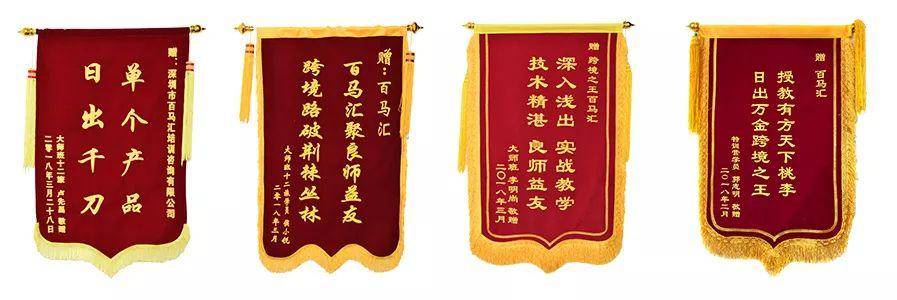 赠：深圳市百马汇培训咨询有限公司
单个产品
日出千刀
大师班十二班 卢先 敬赠
二零一八年三月二十八日
赠：百马汇
百马汇聚良师益友
跨境路破荆棘丛林
大师班十二班学员
二零一八年三月
赠 跨境之王百马汇
深入浅出 实战教学
技术精湛 良师益友
大师班 李明尚 敬赠
二〇一八年三月
赠 百马汇
授教有方天下桃李
日出万金跨境之王
特训营学员 郭志明 敬赠
二〇一八年二月